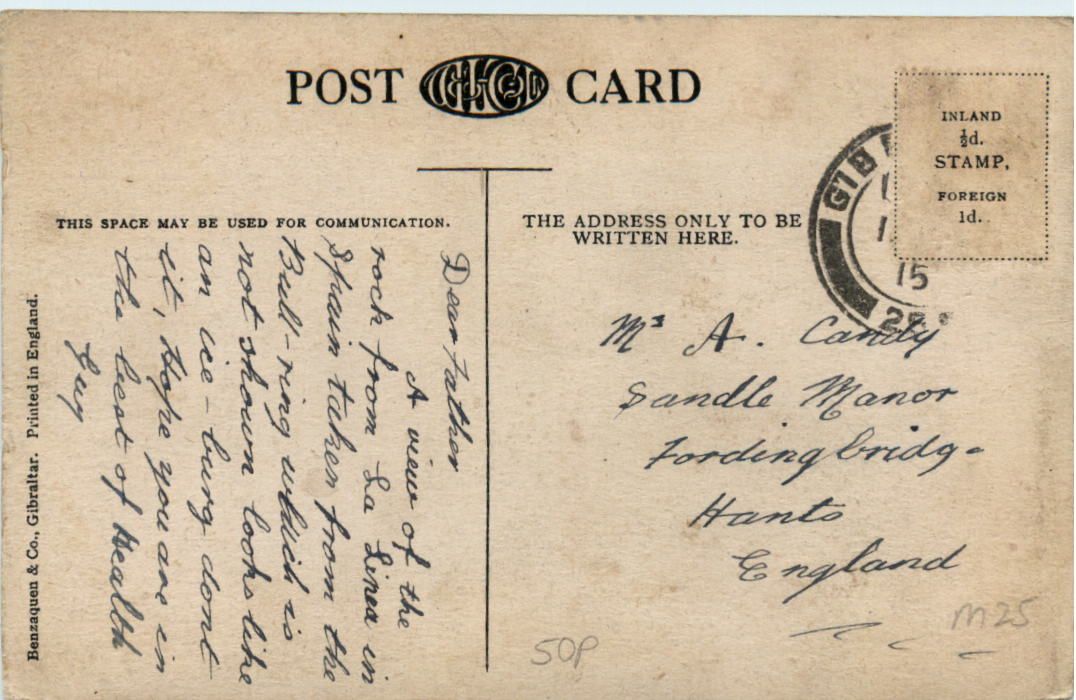 POST CARD
THIS SPACE MAY BE USED FOR COMMUNICATION.
Dear Father
A view of the
rock from La Linea in
Spain taken from the
Bull-ring which is
not shown looks like
an ice-burg dont
it, Hope you are in
the best of Health
Guy
Benzaquen & Co., Gibraltar. Printed in England.
THE ADDRESS ONLY TO BE
WRITTEN HERE.
INLAND
½d.
STAMP,
FOREIGN
1d.
GIB
15
Mr A. Candy
Sandle Manor
Fordingbridge
Hants
England
50P
M25